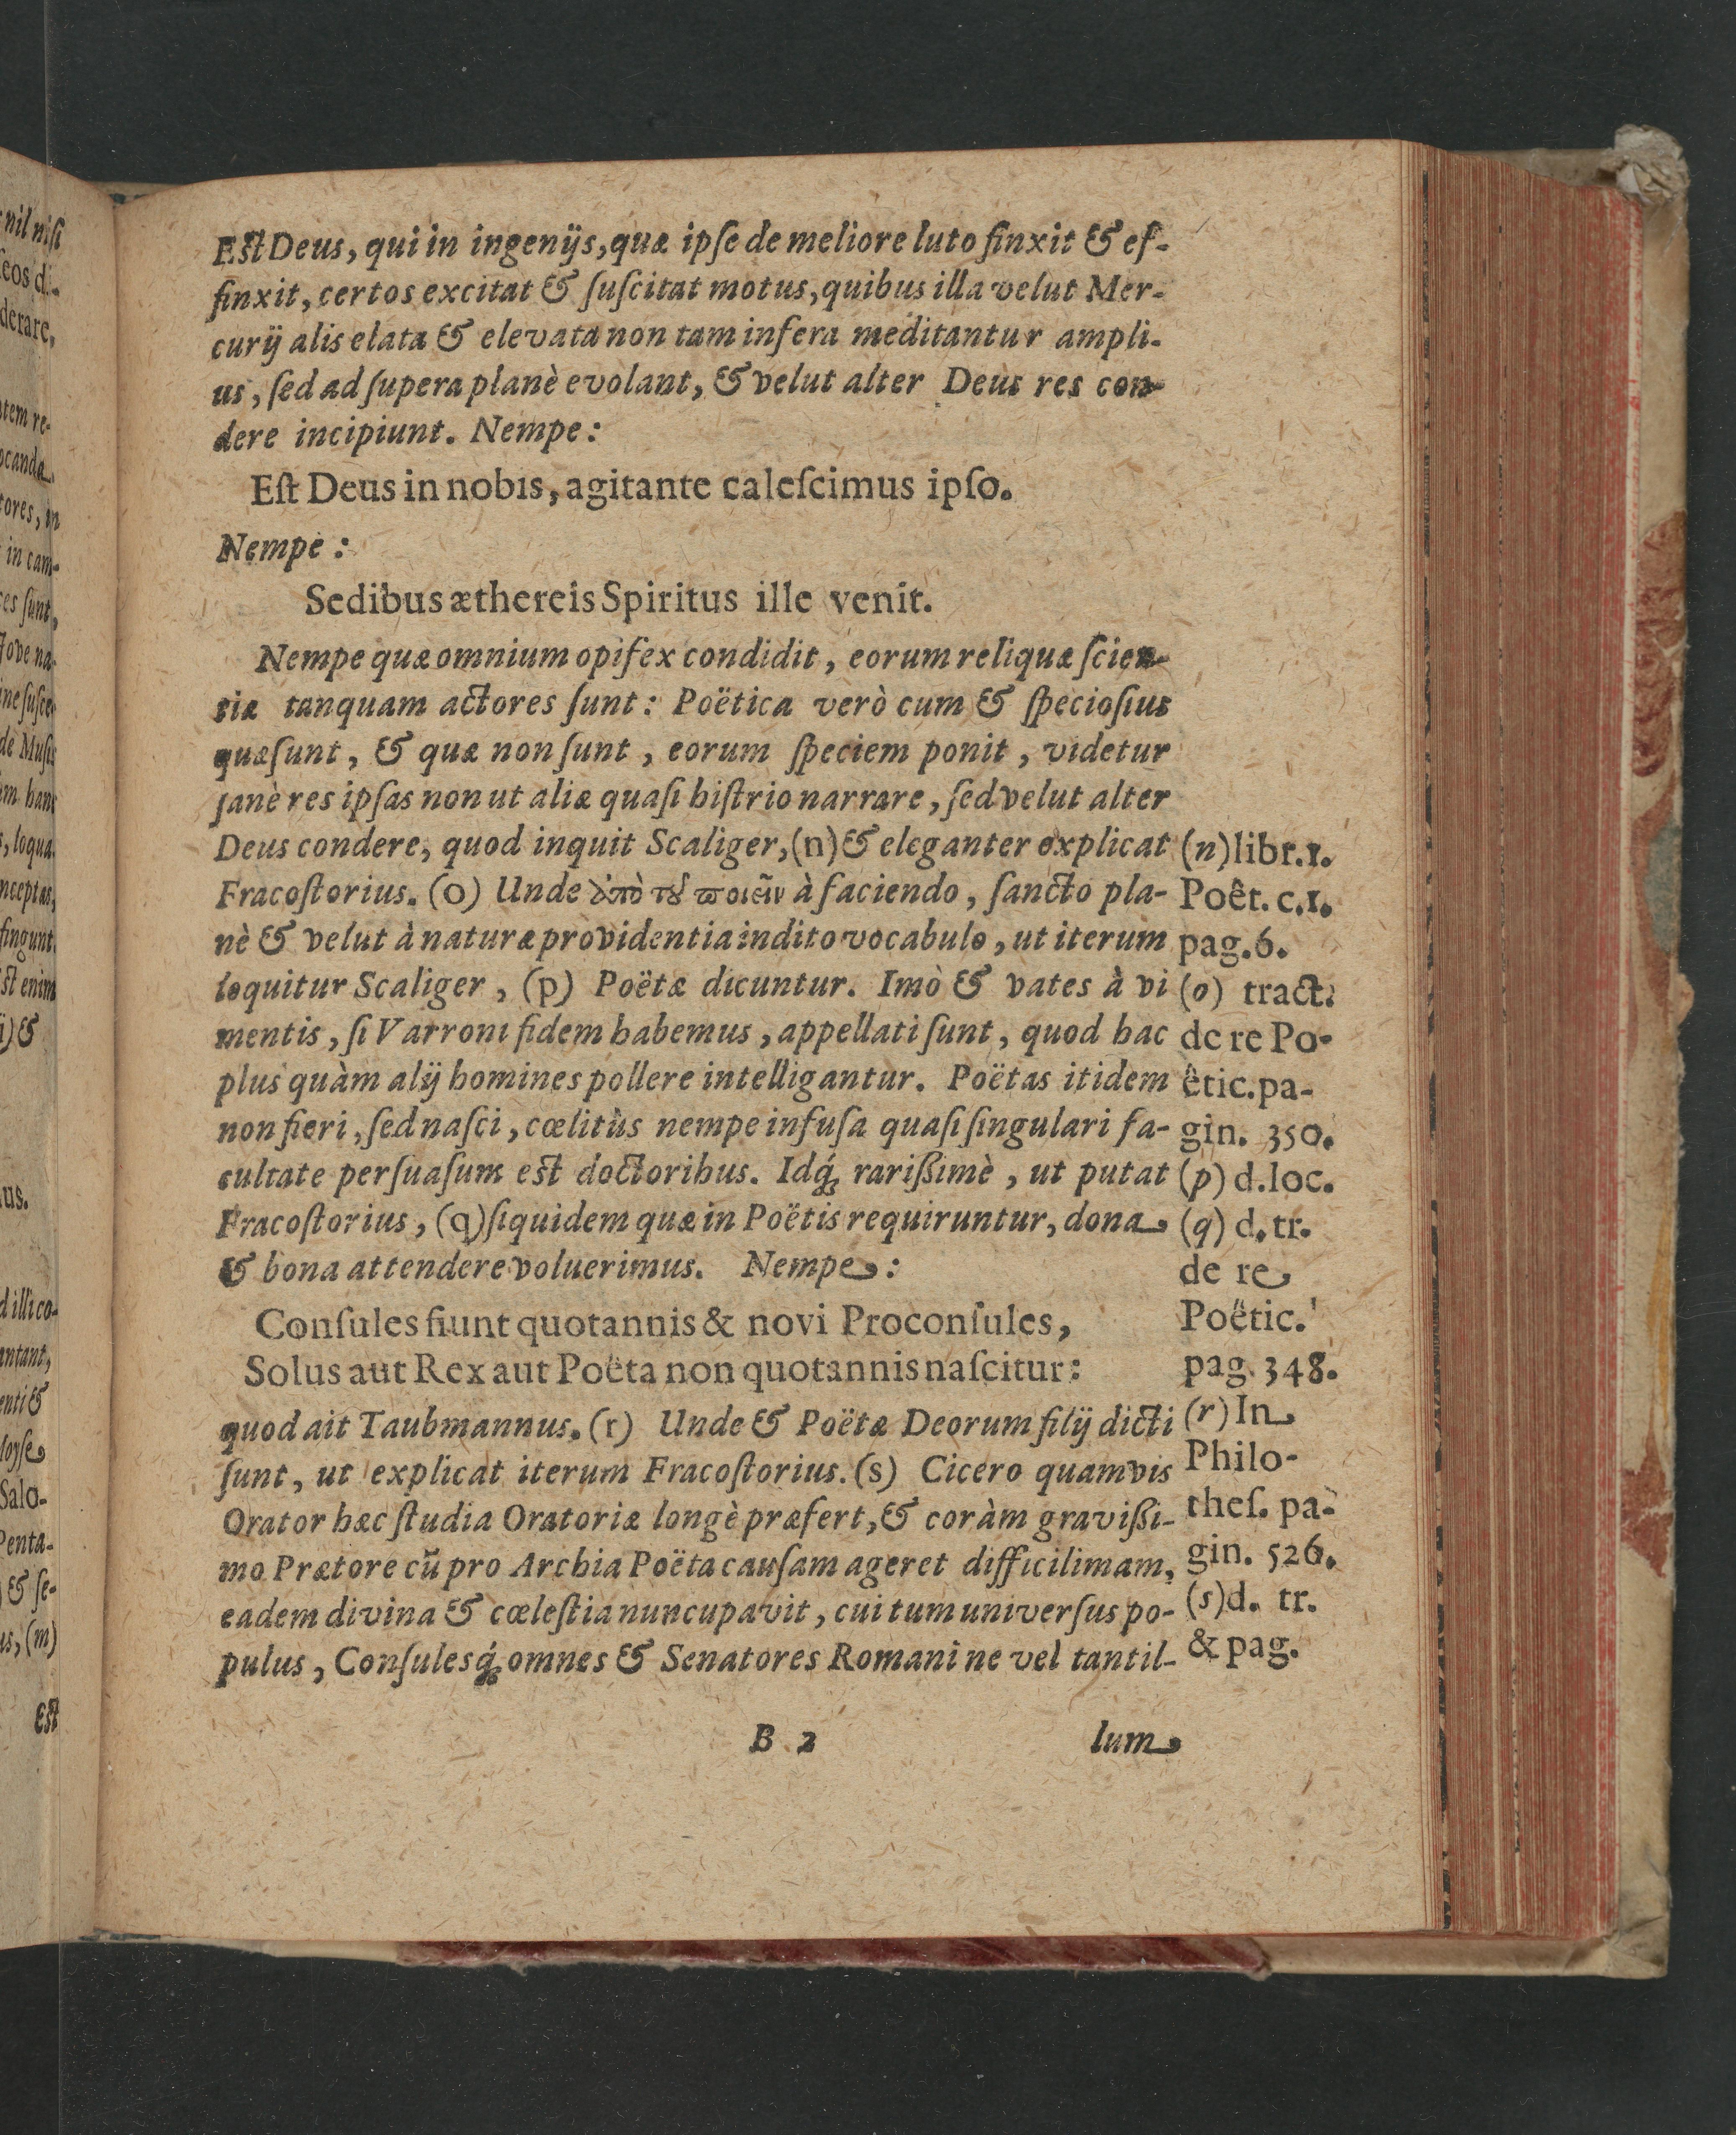 Est Deus, qui in ingenijs, quæ ipſe de meliore luto finxit & ef-
finxit, certos excitat & ſuſcitat motus, quibus illa velut Mer-
curij alis elata & elevata non tam infera meditantur ampli-
us, ſed ad ſupera planè evolant, & velut alter Deus res con-
dere incipiunt. Nempe:
Eſt Deus in nobis, agitante caleſcimus ipſo.
Nempe:
Sedibus æthereis Spiritus ille venit.
Nempe quæ omnium opifex condidit, eorum reliquæ ſcien-
tiæ tanquam actores ſunt: Poëtica verò cum & ſpecioſius
quæ ſunt, & quæ non ſunt, eorum ſpeciem ponit, videtur
ſanè res ipſas non ut aliæ quaſi hiſtrio narrare, ſed velut alter
Deus condere, quod inquit Scaliger, (n) & eleganter explicat
Fracoſtorius. (o) Unde ἀπὸ τοῦ ποιεῖν à faciendo, ſancto pla-
nè & velut à naturæ providentia indito vocabulo, ut iterum
loquitur Scaliger, (p) Poëtæ dicuntur. Imò & vates à vi
mentis, ſi Varroni fidem habemus, appellati ſunt, quod hac
plus quàm alij homines pollere intelligantur. Poëtas itidem
non fieri, ſed naſci, cœlitùs nempe infuſa quaſi ſingulari fa-
cultate perſuaſum est doctoribus. Idq́; rarißimè, ut putat
Fracoſtorius, (q) ſiquidem quæ in Poëtis requiruntur, dona
& bona attendere voluerimus. Nempe:
Conſules fiunt quotannis & novi Proconſules,
Solus aut Rex aut Poëta non quotannis naſcitur:
quod ait Taubmannus. (r) Unde & Poëtæ Deorum filij dicti
ſunt, ut explicat iterum Fracoſtorius. (s) Cicero quamvis
Orator hæc ſtudia Oratoriæ longè præfert, & coràm gravißi-
mo Prætore cũ pro Archia Poëta cauſam ageret difficilimam,
eadem divina & cœleſtia nuncupavit, cui tum univerſus po-
pulus, Conſulesq́; omnes & Senatores Romani ne vel tantil-
(n) libr. 1.
Poêt. c. 1.
pag. 6.
(o) tract.
de re Po-
êtic. pa-
gin. 350.
(p) d. loc.
(q) d. tr.
de re
Poëtic.
pag. 348.
(r) In
Philo-
theſ. pa-
gin. 526.
(s) d. tr.
& pag.
B 2
lum
nil niſi
eos di-
derare,
tem re-
ocanda
tores, in
in cam-
ces ſunt,
Jove na-
ne ſuſce-
de Muſis
m hanc
s, loqua
nceptas,
fingunt.
ſt enim
i) &
us.
d illi co-
antant,
enti &
loyſe
Salo-
Penta-
) & ſe-
us, (m)
Est